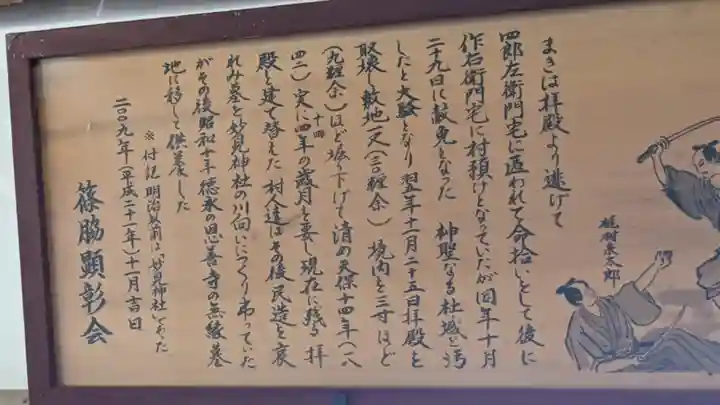 まきは拝殿より逃げて
四郎左衛門宅に匿われて命拾いとして後に
作右衛門宅に村預けとなっていたが同年十月
二十九日に赦免となった 神聖なる社域を汚
したと大騒となり翌年十一月二十五日拝殿を
取壊し敷地一丈(三〇糎余) 境内を三寸ほど
(九糎余)ほど堀り下げて清め天保十四年(一八
四二)実に四年の歳月を要し現在に残る拝
十四
殿を建て替えた 村人達はその後民造を哀
れみ墓を妙見神社の川向いにつくり弔っていた
がその後昭和十年徳永の恩善寺の無縁墓
地に移して供養した
※付記 明治以前は妙見神社であった
二〇〇九年(平成二十一年)十一月吉日
篠脇顕彰会
太郎